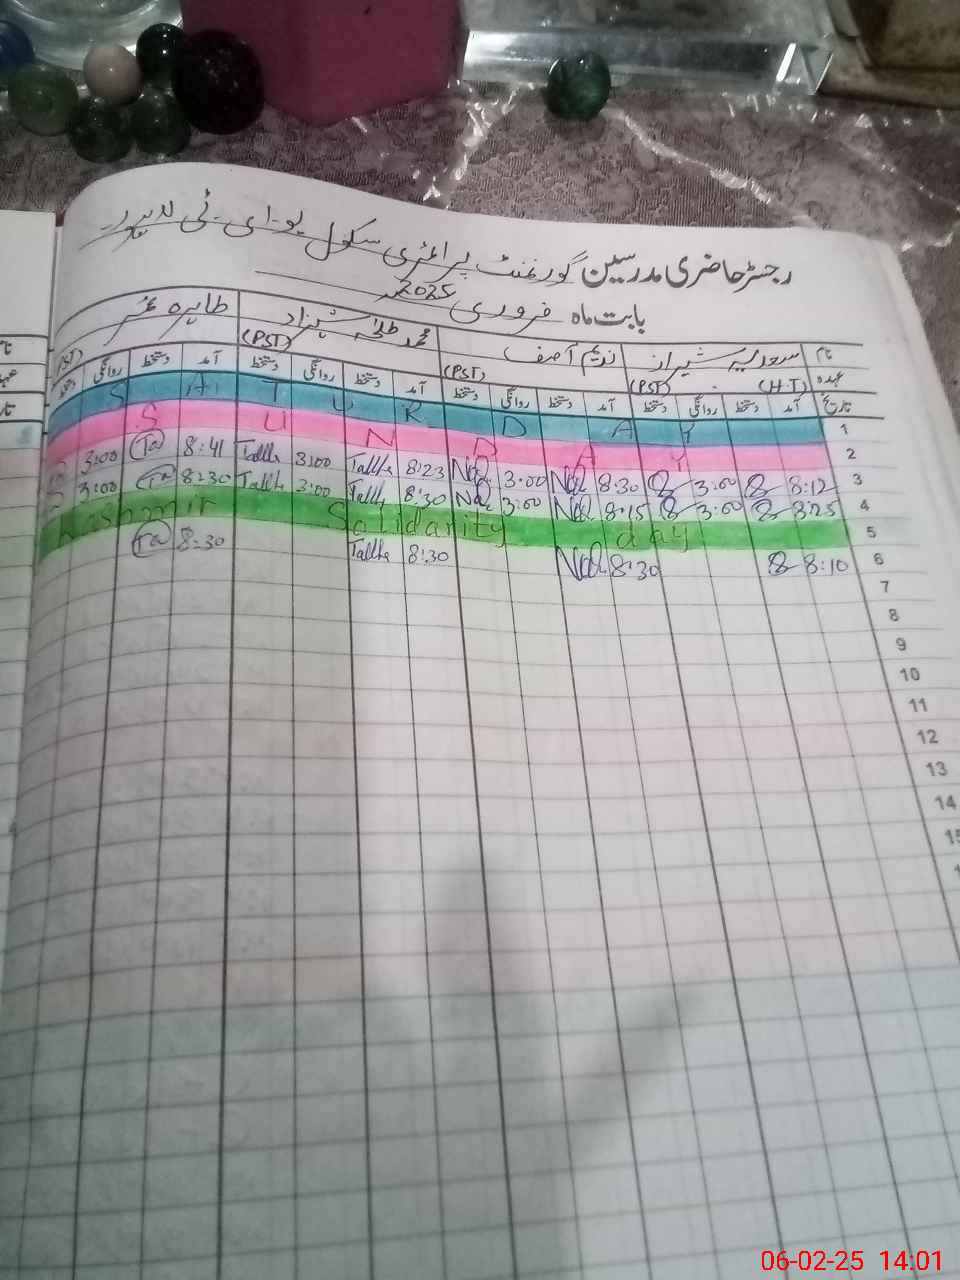 رجسٹر حاضری مدرسین گورنمنٹ پرائمری سکول یو۔ای۔ٹی لاہور
بابت ماہ فروری 2025
نام سعدیہ شیراز ندیم آصف محمد طلحہ شہزاد طاہرہ
عہدہ (H.T) (PST) (PST) (PST)
تاریخ آمد دستخط روانگی دستخط آمد دستخط روانگی دستخط آمد دستخط روانگی دستخط آمد دستخط روانگی دستخط
S A T U R D A Y 1
S U N D A Y 2
3:00 Ta 8:41 Tallha 3:00 Tallha 8:23 3:00 8:30 3:00 8:12 3
3:00 Ta 8:30 Tallha 3:00 Tallha 8:30 3:00 8:15 3:00 8:25 4
Kashmir Solidarity day 5
Ta 8:30 Tallha 8:30 8:30 8:10 6
7
8
9
10
11
12
13
14
15
06-02-25 14:01